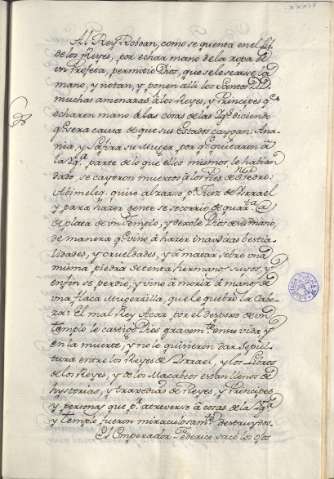 Al Rey Roboan, como se quenta en el Lib.
de los Reyes, por echar mano de la ropa de
un Profeta, permitio Dios, que se le secase la
mano, y notan, y ponen alli los Santos
muchas amenazas a los Reyes, y Principes q.e
echaren mano a las cosas de las Ygl.as diciendo
q.e sera causa de que sus Estados caygan. Ana-
nia, y Safira su Muger, por q.e quitaron a
la Ygl.a parte de lo que ellos mismos le habian
dado se cayeron muertos a los Pies de S.n Pedro.
Abimelec quiso alzarse p.r Juez de Ysrael
y para hazer gente se socorrio de
de plata de un Templo, y dexole Dios de su mano,
de manera q.e vino a hazer inauditas bestia-
lidades, y crueldades, y a matar sobre una
misma piedra setenta hermanos suyos, y
en fin se perdio, y vino a morir a mano de
una flaca Mugercilla, que le quebro la Cabe-
za. El mal Rey Acaz por el despojo de un
Templo le castigo Dios gravem.te en vida, y
en la muerte, y no le quisieron dar Sepul-
tura entre los Reyes de Ysrael, y los Libros
de los Reyes, y de los Macabeos estan llenos de
hystorias, y tragedias de Reyes, y Principes
y personas que p.r atreverse a cosas de la Ygl.a
y Templo fueron miraculosam.te destruydos.
El Emperador Federico saco los ojos